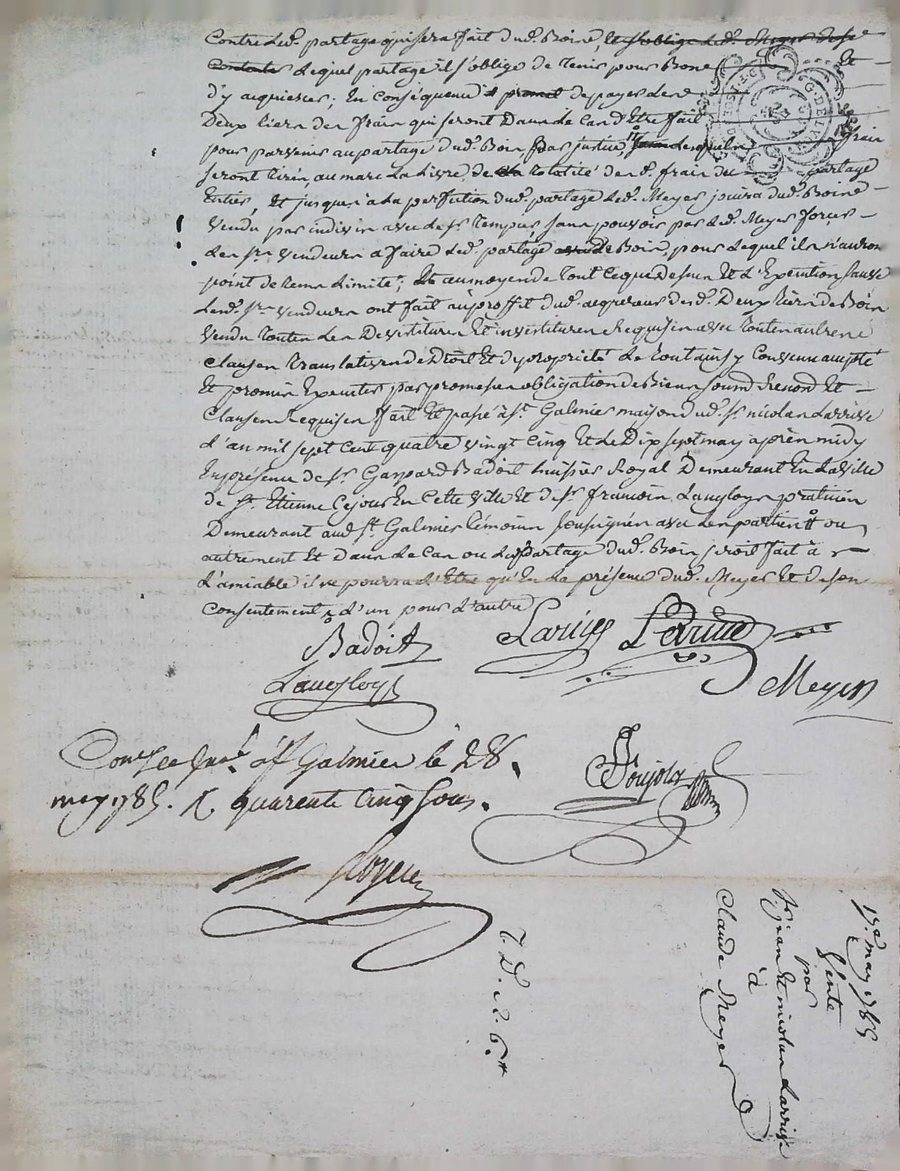 Contre led. partage qui sera fait dud. Boire, et s'oblige led. Meyer
lequel partage il s'oblige de tenir pour Bone Et
d'y acquiescer; En conséquence de payer les
Deux tiers des frais qui seront Dans le Cas d'Etre fait
pour parvenir au partage dud. Bois par justice lesquels frais
seront tirés au marc la livre de la totalité desd. frais du partage
Entier, Et jusques à la perfection dud. partage led. Meyer jouira dud. Bois
Vendu par indivis avec les srs Vendeurs, sans pouvoir par led. Meyer forcer
les srs Vendeurs a faire led. partage de Bois, pour lequel ils n'auront
point de tems limité; Et au moyen de tout ce que dessus Et l'Execution
lesd. srs Vendeurs ont fait au proffit dud. acquereur desd. Deux tiers de Bois
Vendu toutes les Devestitures Et investitures Requises avec toutes autres
Clauses translatives de Droit Et de propriété Le tout ainsy Convenu accepté
Et promis Executer par promesses obligation de Biens soumis Renon Et
Clauses Requises fait Et passé à St. Galmier maison dud. sr nicolas Larrisse
L'an mil sept Cent quatre vingt Cinq Et Le Dix sept may après midy
En présence de sr. Gaspard Badoit huissier Royal Demeurant En la Ville
de St. Etienne Ce jour En Cette Ville Et de sr francois Langloys praticien
Demeurant aud. St. Galmier témoins soussignés avec les parties ou
autrement Et Dans le Cas ou led. partage dud. Bois seroit fait à
L'amiable il ne pourra l'Etre qu'En la présence dud. Meyer Et de son
Consentement, d'un pour L'autre
Badoit Larisse Larrisse
Langloys Meyer
à St Galmier le 28
may 1785. R. quarente Cinq sous. Poujolas
17e may 1785
Vente
par
Srs jean Et nicolas Larrisse
à
Claude Meyer